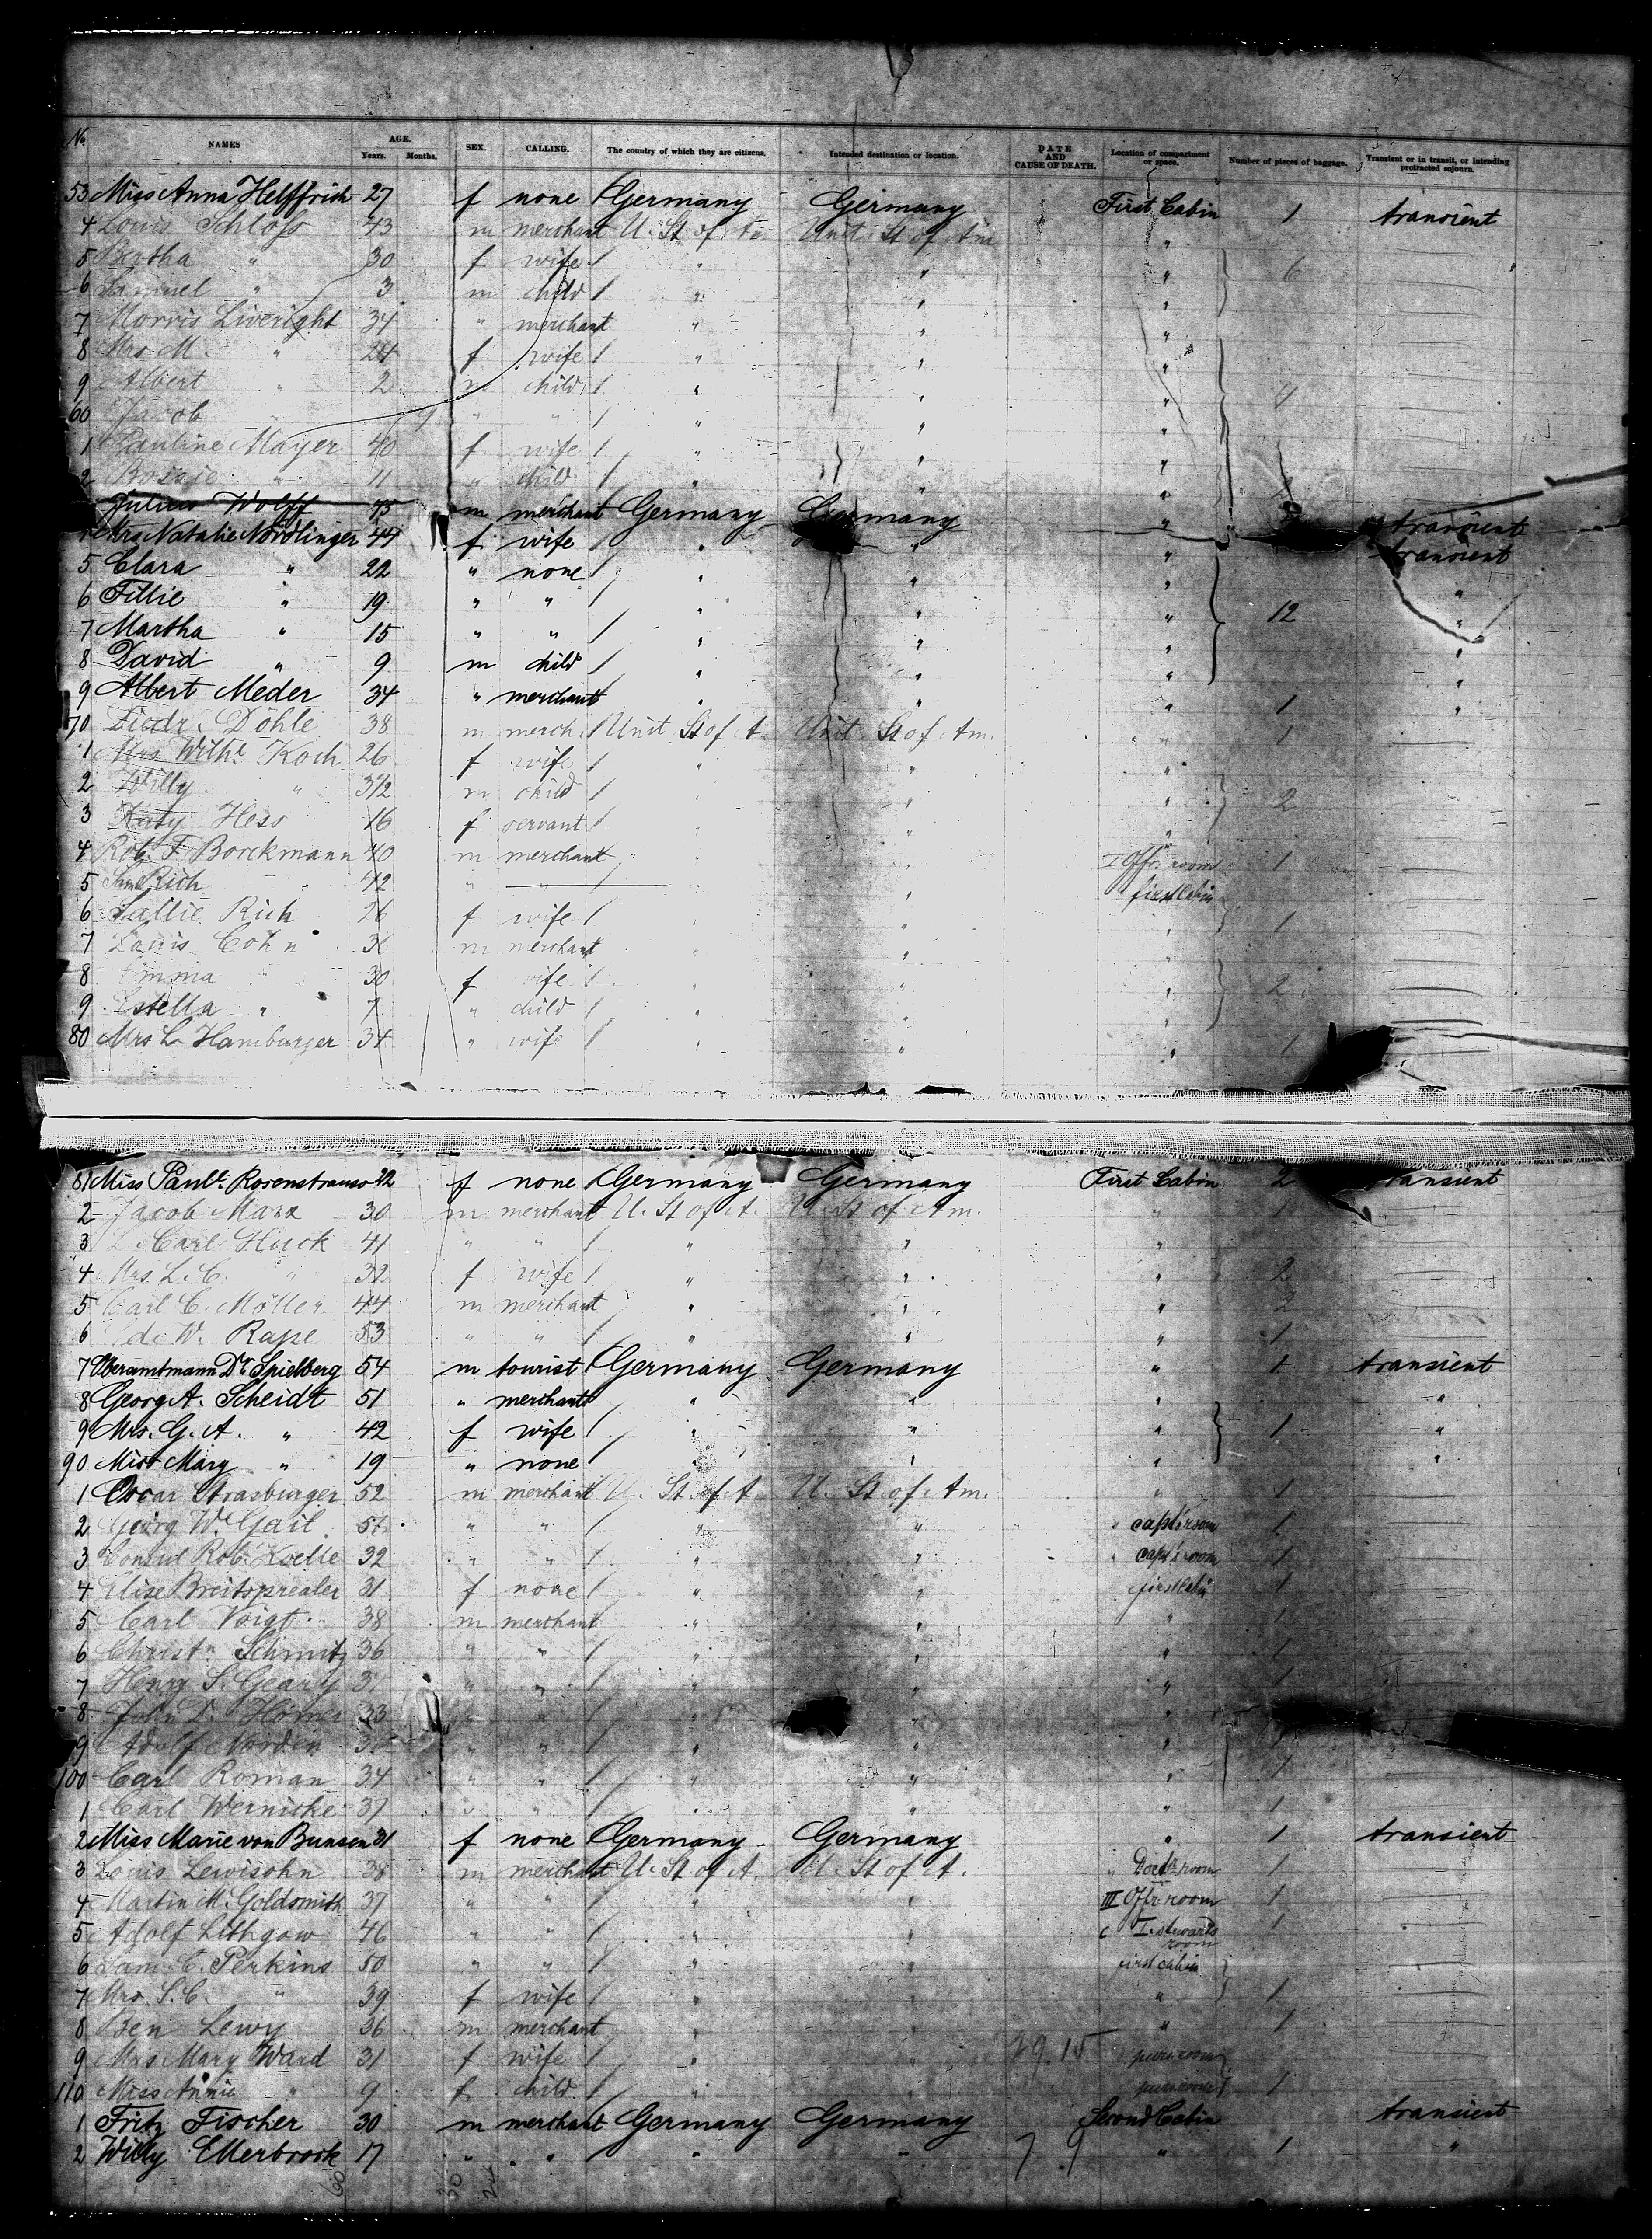 No. NAMES AGE. Years. Months. SEX. CALLING. The country of which they are citizens. Intended destination or location. DATE AND CAUSE OF DEATH. Location of compartment or space. Number of pieces of baggage. Transient or in transit, or intending protracted sojourn.
53 Miss Anna Helffrich 27 f none Germany Germany First Cabin 1 transient
4 Louis Schloss 43 m merchant U. St. of Am Unit. St of Am "
5 Bertha " 30 f wife " " " 6
6 Samuel " 3 m child " " "
7 Morris Liveright 34 " merchant " " "
8 Mrs M. " 24 f wife " " "
9 Albert " 2 m child " " " 4
60 Jacob " 9 " " " " "
1 Pauline Mayer 40 f wife " " "
2 " 11 " child " " "
Julius Wolff 45 m merchant Germany Germany " transient
4 Mrs Natalie Nördlinger 44 f wife " " " transient
5 Clara " 22 " none " " " "
6 Tillie " 19 " " " " " 12 "
7 Martha " 15 " " " " " "
8 David " 9 m child " " " "
9 Albert Meder 34 " merchant " " " 1 "
70 Diedr. Döhle 38 m merch. Unit St of A. Unit. St of Am. " 1
1 Mrs Wilh. Koch 26 f wife " " "
2 Willy " 3 1/2 m child " " " 2
3 Katy Hess 16 f servant " " "
4 Rob. F. Borckmann 40 m merchant " " I Offr. room 1
5 Rich 42 " " first Cabin
6 Sallie Rich 26 f wife " " " 1
7 Louis Cohn 36 m merchant " " "
8 Emma " 30 f wife " " " 2
9 Estella " 7 " child " " "
80 Mrs L. Hamburger 34 " wife " " " 1
81 Miss Paul. Rosenstrauss 22 f none Germany Germany First Cabin 2 transient
2 Jacob Marx 30 m merchant U. St of A. U. St of Am. " 1
3 L. Carl Huck 41 " " " " "
4 Mrs. L. C. " 32 f wife " " " 2
5 Carl C. Möller 44 m merchant " " " 2
6 W. Rape 53 " " " " " 1
7 Oberamtmann Dr. Spielberg 54 m tourist Germany Germany " 1 transient
8 Georg A. Scheidt 51 " merchant " " " "
9 Mrs. G. A. " 42 f wife " " " 1 "
90 Miss Mary " 19 " none " " " "
1 Oscar Strasburger 52 m merchant U. St. of A. U. St of Am. " 1
2 Georg W. Gail 57 " " " " " capt's room 1
3 Consul Rob. Koelle 32 " " " " " capt's room 1
4 Elise Breitsprecher 31 f none " " first Cabin 1
5 Carl Voigt 38 m merchant " " " 1
6 Christn. Schmitz 36 " " " " " 1
7 Henry S. Geary " " " " " 1
8 John D. Horner 33 " " " " "
9 Adolf Norden " " " " "
100 Carl Roman 34 " " " " " 1
1 Carl Wernicke 37 " " " " " 1
2 Miss Marie von Bunsen 31 f none Germany Germany " 1 transient
3 Louis Lewisohn 38 m merchant U. St of A. U. St of A. " Doct's room 1
4 Martin M. Goldsmith 37 " " " " III Offr. room 1
5 Adolf Lithgow 46 " " " " I. stewards room 1
6 Sam. C. Perkins 50 " " " " first cabin
7 Mrs. S. C. " 39 f wife " " " 1
8 Ben Lewy 36 m merchant " " " 1
9 Mrs Mary Ward 31 f wife " " 29.15 purs. room
110 Miss Annie " 9 f child " " purs. room 1
1 Fritz Fischer 30 m merchant Germany Germany Second Cabin transient
2 Willy Ellerbrook 17 " " " " 7 9 " 1 "